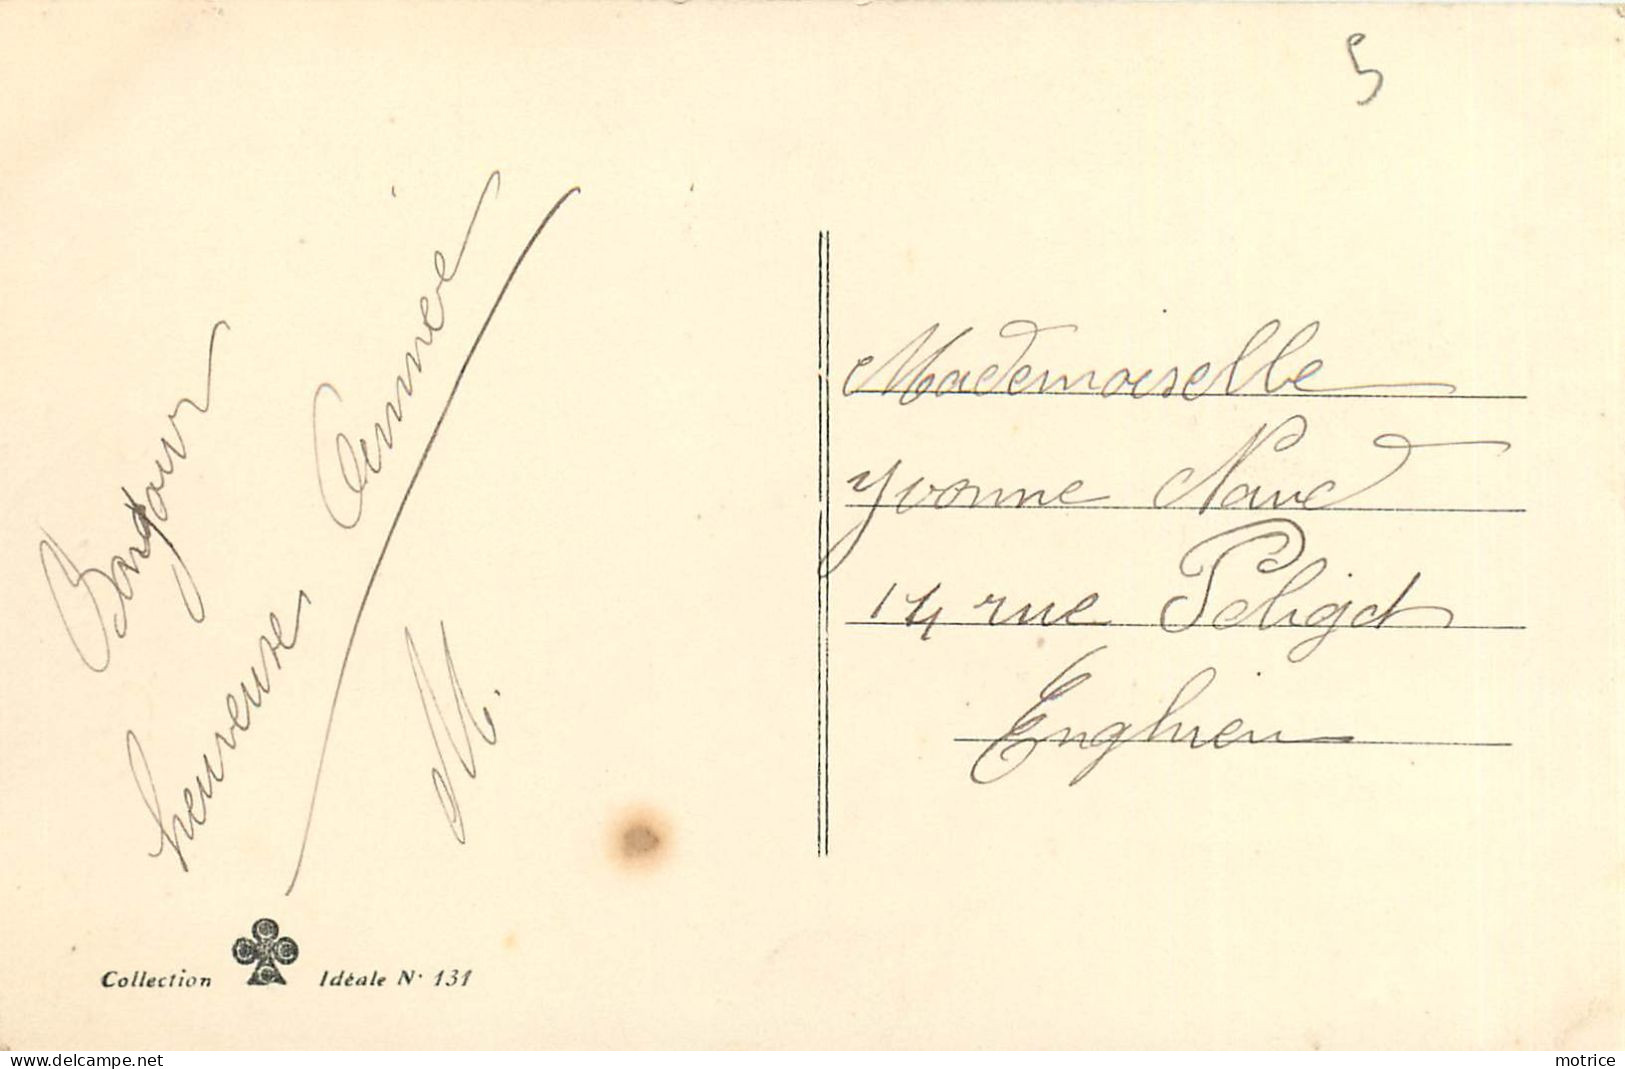 5
Bonjour
heureuse Année
M.
Mademoiselle
Yvonne
14 rue Peligot
Enghien
Collection Idéale N° 131
www.delcampe.net
motrice